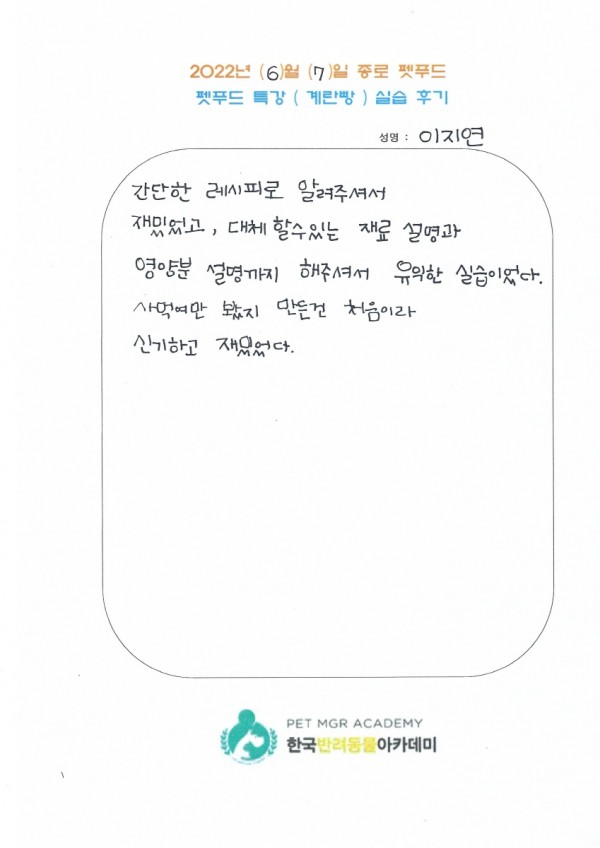 2022년 (6)월 (7)일 종로 펫푸드
펫푸드 특강 ( 계란빵 ) 실습 후기
성명 : 이지연
간단한 레시피로 알려주셔서
재밌었고, 대체 할수있는 재료 설명과
영양분 설명까지 해주셔서 유익한 실습이었다.
사먹여만 봤지 만든건 처음이라
신기하고 재밌었다.
PET MGR ACADEMY
한국반려동물아카데미